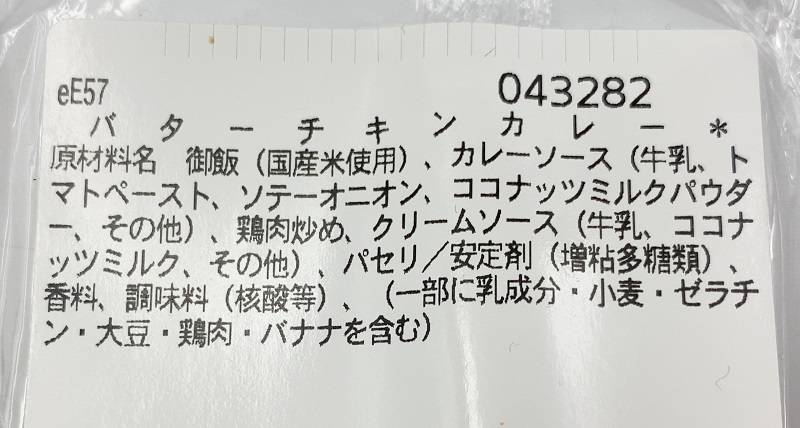 eE57 043282
バターチキンカレー＊
原材料名 御飯（国産米使用）、カレーソース（牛乳、ト
マトペースト、ソテーオニオン、ココナッツミルクパウダ
ー、その他）、鶏肉炒め、クリームソース（牛乳、ココナ
ッツミルク、その他）、パセリ／安定剤（増粘多糖類）、
香料、調味料（核酸等）、（一部に乳成分・小麦・ゼラチ
ン・大豆・鶏肉・バナナを含む）